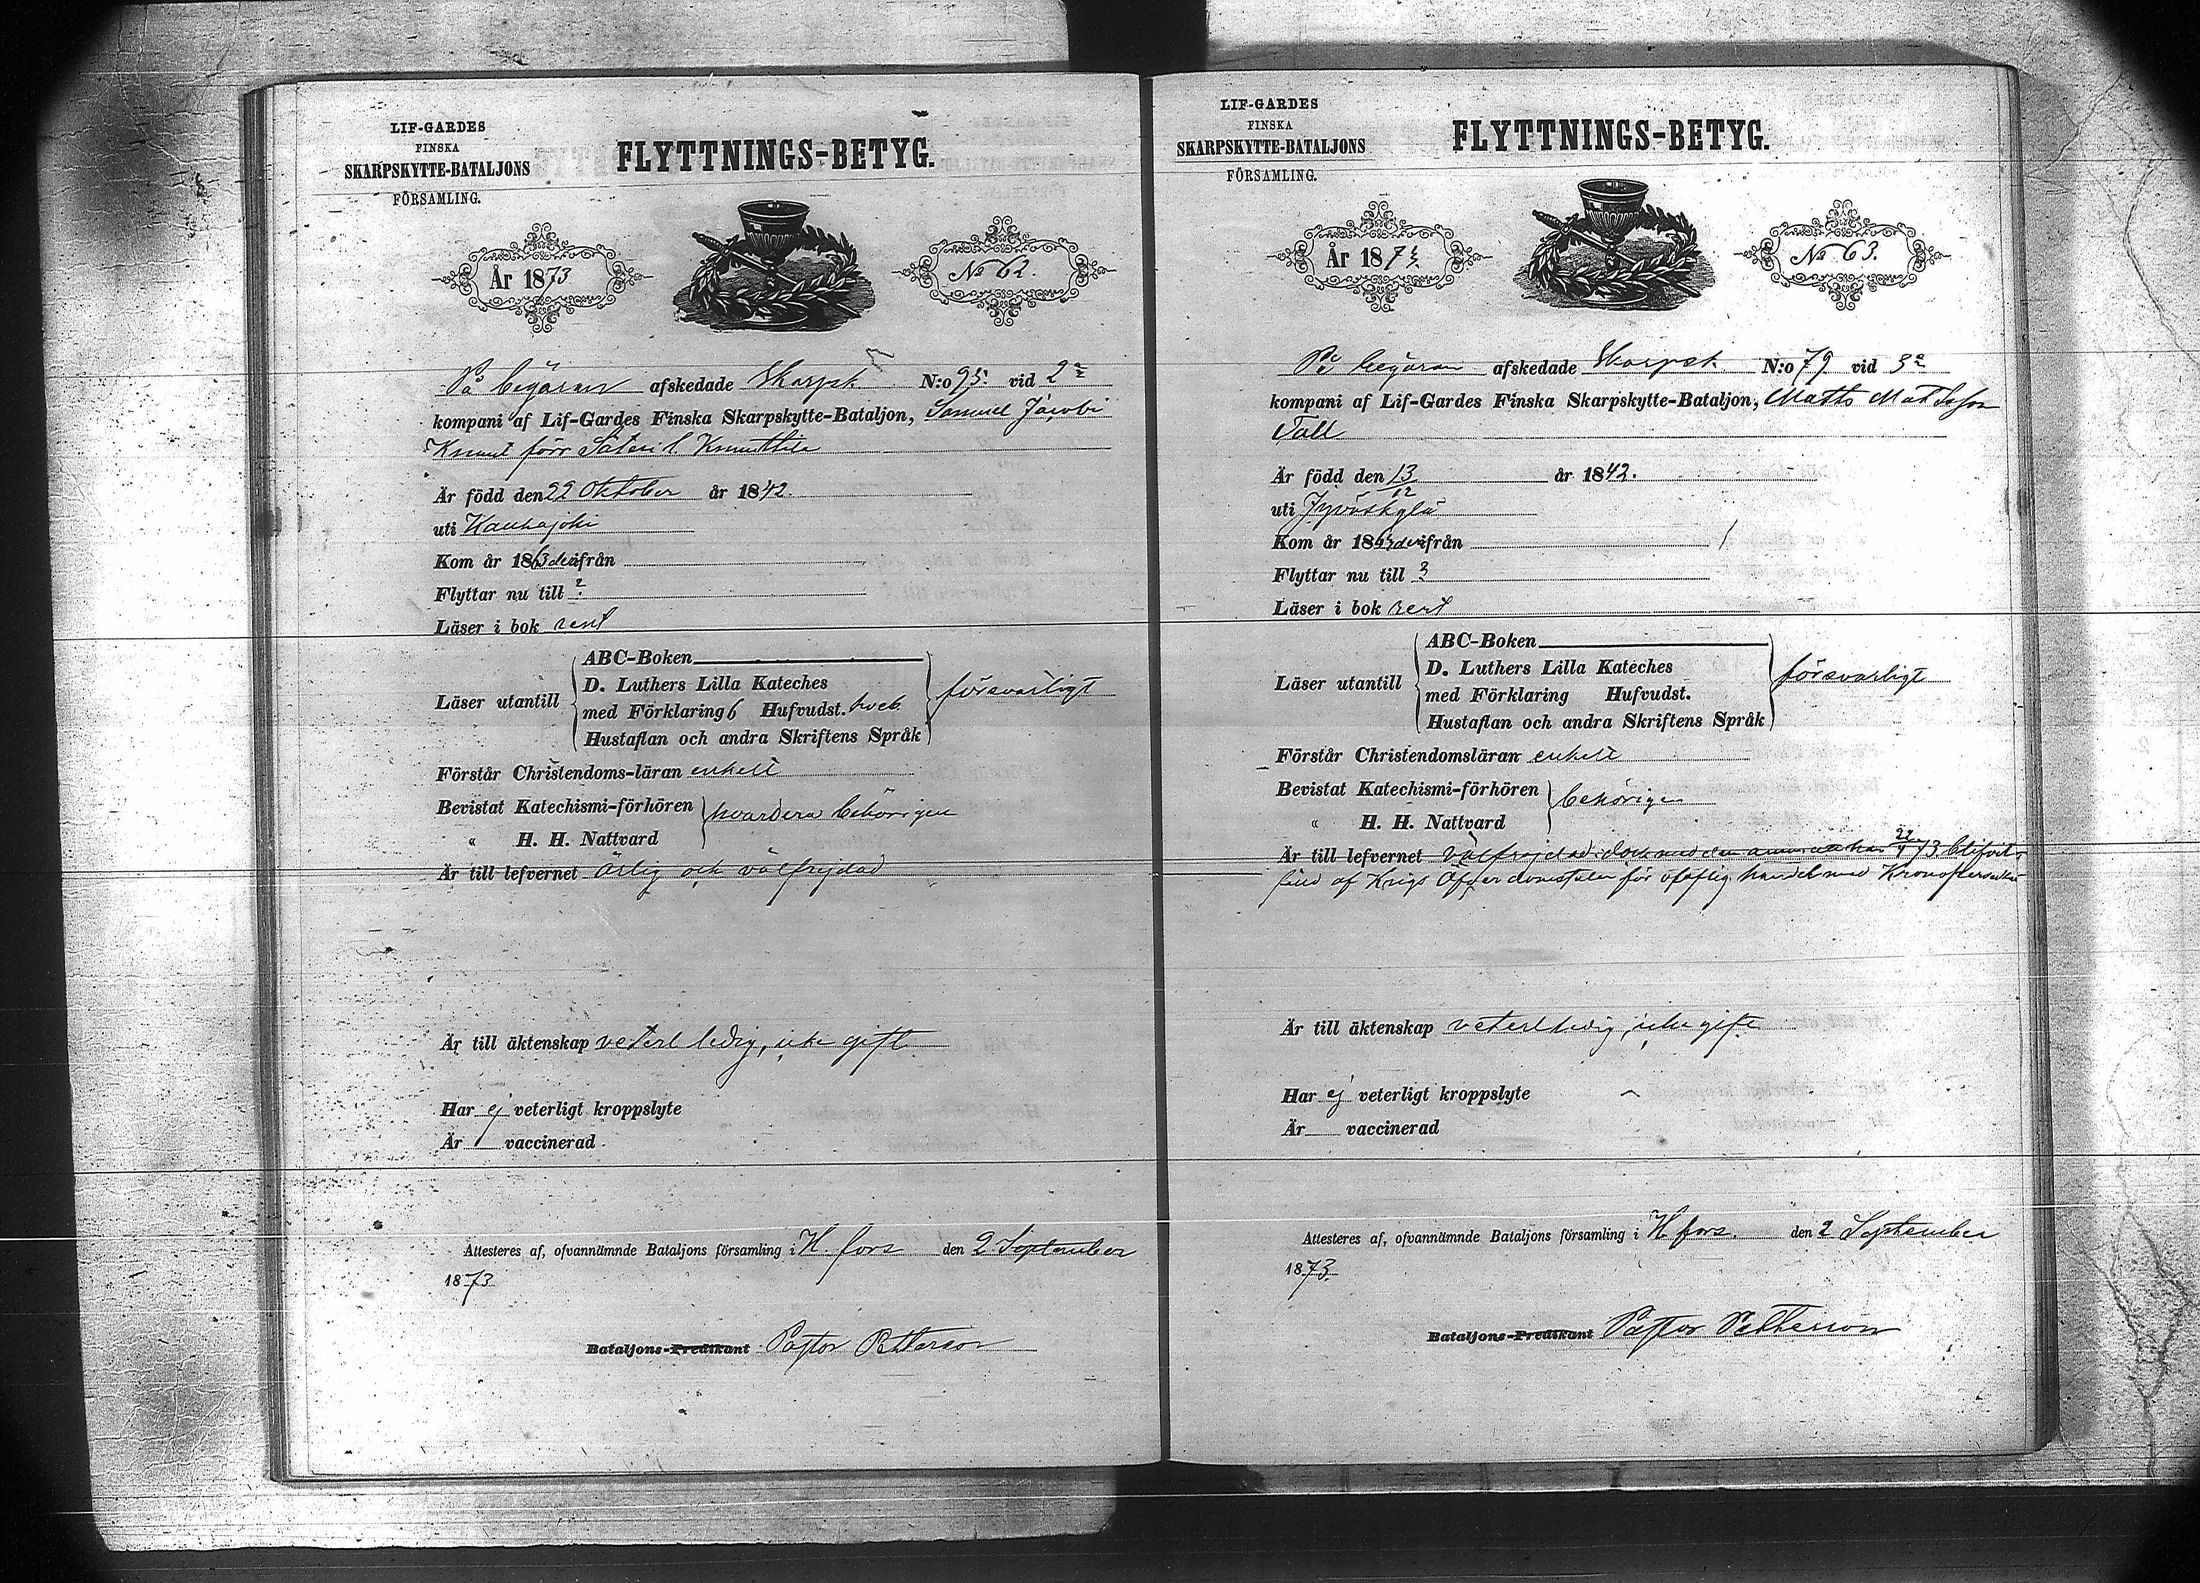 LIF-GARDES
FINSKA
SKARPSKYTTE-BATALJONS
FÖRSAMLING.
FLYTTNINGS-BETYG.
År 1873
No 62.
På begäran afskedade Skarpsk N:o 95. vid 2a
kompani af Lif-Gardes Finska Skarpskytte-Bataljon, Samuel Jacobi
Knuut förr Knuuttila
Är född den 22 Oktober år 1842.
uti Kauhajoki
Kom år 1863 från
Flyttar nu till ?
Läser i bok rent
Läser utantill
ABC-Boken
D. Luthers Lilla Kateches
med Förklaring 6 Hufvudst.
Hustaflan och andra Skriftens Språk
försvarligt
Förstår Christendoms-läran enkelt
Bevistat Katechismi-förhören
" H. H. Nattvard
hvardera behörigen
Är till lefvernet ärlig och välfrejdad
Är till äktenskap veterl ledig, icke gift
Har ej veterligt kroppslyte
Är vaccinerad
Attesteres af, ofvannämnde Bataljons församling i H.fors den 2 September
1873
Bataljons-Predikant Pastor Petterson
LIF-GARDES
FINSKA
SKARPSKYTTE-BATALJONS
FÖRSAMLING.
FLYTTNINGS-BETYG.
År 1873
No 63.
På begäran afskedade Skarpsk N:o 79 vid 3e
kompani af Lif-Gardes Finska Skarpskytte-Bataljon, Matts Matsson
Tall
Är född den 13/12 år 1842.
uti Jyväskylä
Kom år 1863 från
Flyttar nu till ?
Läser i bok rent
Läser utantill
ABC-Boken
D. Luthers Lilla Kateches
med Förklaring Hufvudst.
Hustaflan och andra Skriftens Språk
försvarligt
Förstår Christendomsläran enkelt
Bevistat Katechismi-förhören
" H. H. Nattvard
behörigen
Är till lefvernet välfrejdad dock med den han 73 blifvit
af Krigs för olaflig handel med
Är till äktenskap veterl ledig, icke gift
Har ej veterligt kroppslyte
Är vaccinerad
Attesteres af, ofvannämnde Bataljons församling i H.fors. den 2 September
1873
Bataljons-Predikant Pastor Petterson